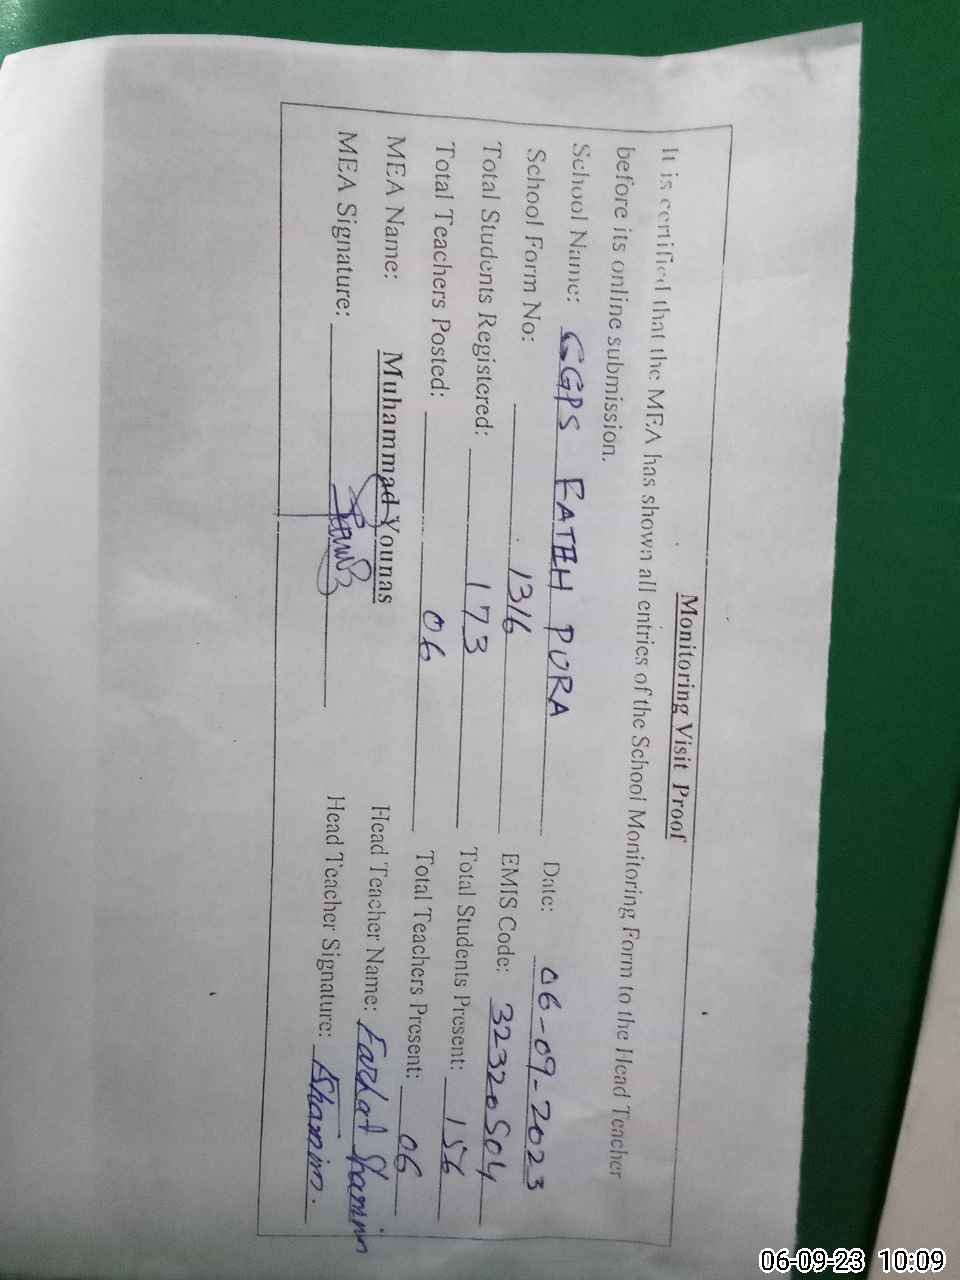 Monitoring Visit Proof
It is certified that the MEA has shown all entries of the School Monitoring Form to the Head Teacher
before its online submission.
School Name: GGPS FATEH PURA Date: 06-09-2023
School Form No: 1316 EMIS Code: 32320504
Total Students Registered: 173 Total Students Present: 156
Total Teachers Posted: 06 Total Teachers Present: 06
MEA Name: Muhammad Younas Head Teacher Name: Shamim
MEA Signature: Head Teacher Signature: Shamim.
06-09-23 10:09